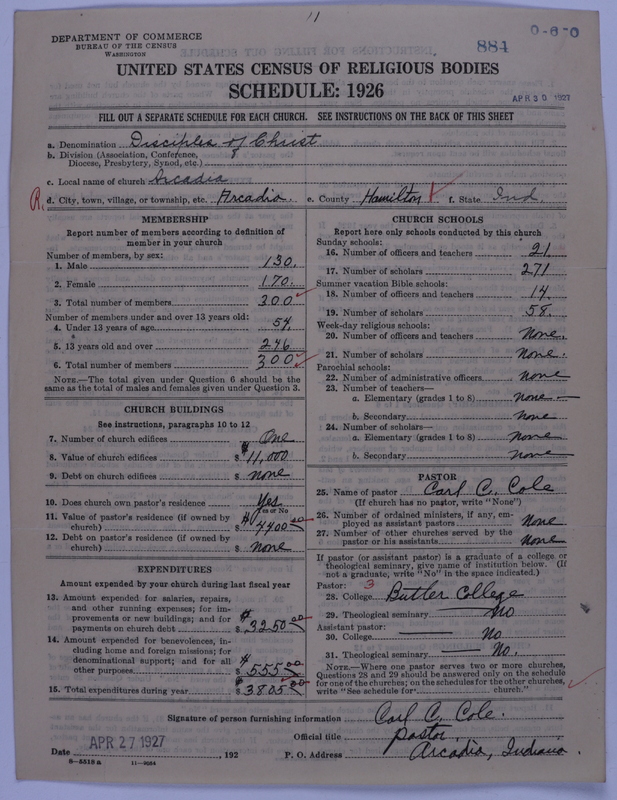 11
0-6-0
DEPARTMENT OF COMMERCE
BUREAU OF THE CENSUS
WASHINGTON
884
UNITED STATES CENSUS OF RELIGIOUS BODIES
SCHEDULE: 1926
APR 30 1927
FILL OUT A SEPARATE SCHEDULE FOR EACH CHURCH. SEE INSTRUCTIONS ON THE BACK OF THIS SHEET
a. Denomination Disciples of Christ
b. Division (Association, Conference,
Diocese, Presbytery, Synod, etc.)
c. Local name of church Arcadia
R. d. City, town, village, or township, etc. Arcadia. e. County Hamilton f. State Ind.
MEMBERSHIP
Report number of members according to definition of
member in your church
Number of members, by sex:
1. Male 130.
2. Female 170.
3. Total number of members 300
Number of members under and over 13 years old:
4. Under 13 years of age 54
5. 13 years old and over 246
6. Total number of members 300
NOTE.—The total given under Question 6 should be the
same as the total of males and females given under Question 3.
CHURCH BUILDINGS
See instructions, paragraphs 10 to 12
7. Number of church edifices One
8. Value of church edifices $ 11,000
9. Debt on church edifices $ none
10. Does church own pastor's residence Yes
Yes or No
11. Value of pastor's residence (if owned by
church) $ 4400 00
12. Debt on pastor's residence (if owned by
church) $ none
EXPENDITURES
Amount expended by your church during last fiscal year
13. Amount expended for salaries, repairs,
and other running expenses; for im-
provements or new buildings; and for
payments on church debt $ 3250 00
14. Amount expended for benevolences, in-
cluding home and foreign missions; for
denominational support; and for all
other purposes $ 555 00
15. Total expenditures during year $ 3805 00
CHURCH SCHOOLS
Report here only schools conducted by this church
Sunday schools:
16. Number of officers and teachers 21.
17. Number of scholars 271
Summer vacation Bible schools:
18. Number of officers and teachers 14.
19. Number of scholars 58.
Week-day religious schools:
20. Number of officers and teachers None.
21. Number of scholars None.
Parochial schools:
22. Number of administrative officers None
23. Number of teachers—
a. Elementary (grades 1 to 8) None
b. Secondary None
24. Number of scholars—
a. Elementary (grades 1 to 8) None
b. Secondary None
PASTOR
25. Name of pastor Carl C. Cole
(If church has no pastor, write "None")
26. Number of ordained ministers, if any, em-
ployed as assistant pastors None
27. Number of other churches served by the
pastor or his assistants None
If pastor (or assistant pastor) is a graduate of a college or
theological seminary, give name of institution below. (If
not a graduate, write "No" in the space indicated.)
Pastor: 3
28. College Butler College
29. Theological seminary No
Assistant pastor:
30. College No
31. Theological seminary No.
NOTE.—Where one pastor serves two or more churches,
Questions 28 and 29 should be answered only on the schedule
for one of the churches; on the schedules for the other churches,
write "See schedule for church."
Signature of person furnishing information Carl C. Cole.
Official title Pastor
Date APR 27 1927, 192 P. O. Address Arcadia, Indiana.
8—5518 a 11—9264